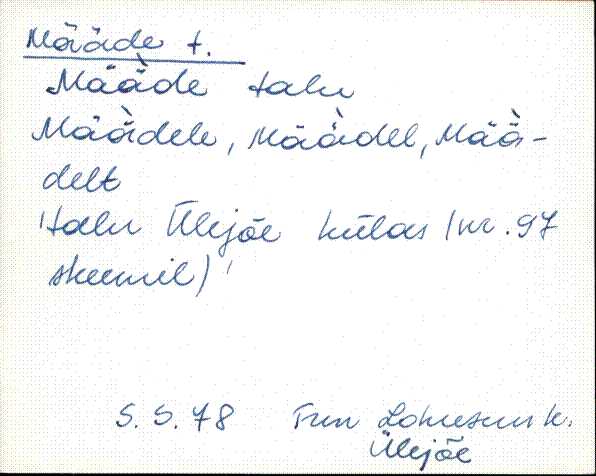 Määde t.
Mää̀de talu
Mää̀dele, Määdel, Mää̀-
delt
'talu Ülejõe külas (nr. 97
skeemil)'
S. S. 78 Trm Lohusuu k.
Ülejõe